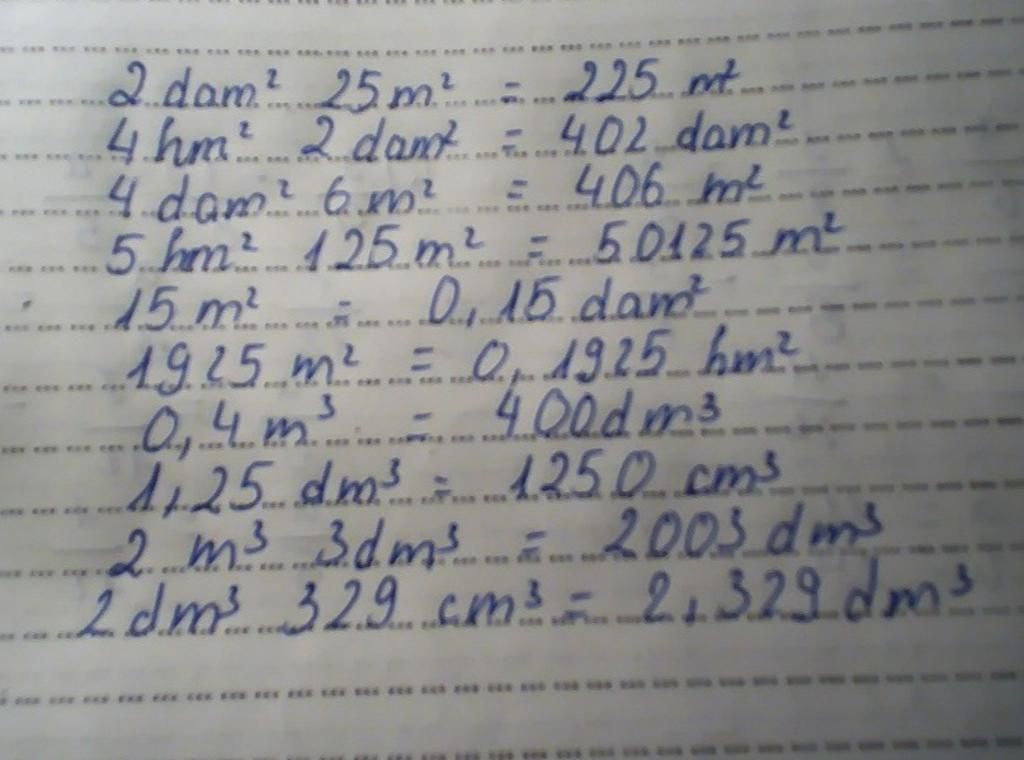 2 dam² 25 m² = 225 m²
4 hm² 2 dam² = 402 dam²
4 dam² 6 m² = 406 m²
5 hm² 125 m² = 50125 m²
15 m² = 0,15 dam²
1925 m² = 0,1925 hm²
0,4 m³ = 400 dm³
1,25 dm³ = 1250 cm³
2 m³ 3 dm³ = 2003 dm³
2 dm³ 329 cm³ = 2,329 dm³